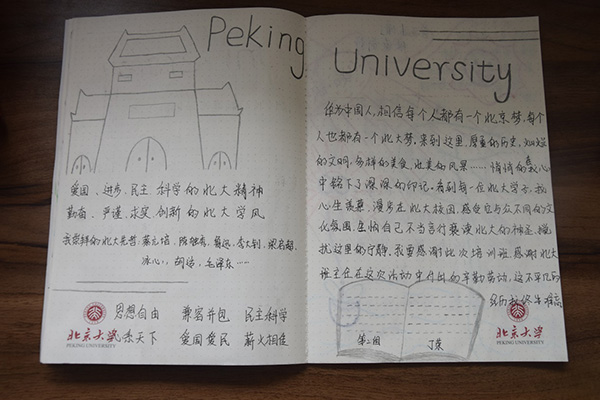 Peking
爱国、进步、民主、科学的北大精神
勤奋、严谨、求实、创新的北大学风
我崇拜的北大先哲:蔡元培、陈独秀、鲁迅、李大钊、梁启超
冰心、胡适、毛泽东……
思想自由 兼容并包 民主科学
天下 爱国爱民 薪火相传
北京大学
PEKING UNIVERSITY
University
作为中国人,相信每个人都有一个北京梦,每个
人也都有一个北大梦。来到这里,厚重的历史,灿烂
的文明,多样的美食,优美的风景……悄悄的在我心
中铭下了深深的印记。看到每一位北大学子,我
心生羡慕,漫步在北大校园,感受与众不同的文
化氛围,生怕自己不当言行亵渎北大的神圣,搅
扰这里的宁静。我要感谢此次培训班,感谢北大
班主任在这次活动中付出的辛勤劳动,这不平凡的
经历我终生难忘
第二组 丁荣
北京大学
PEKING UNIVERSITY